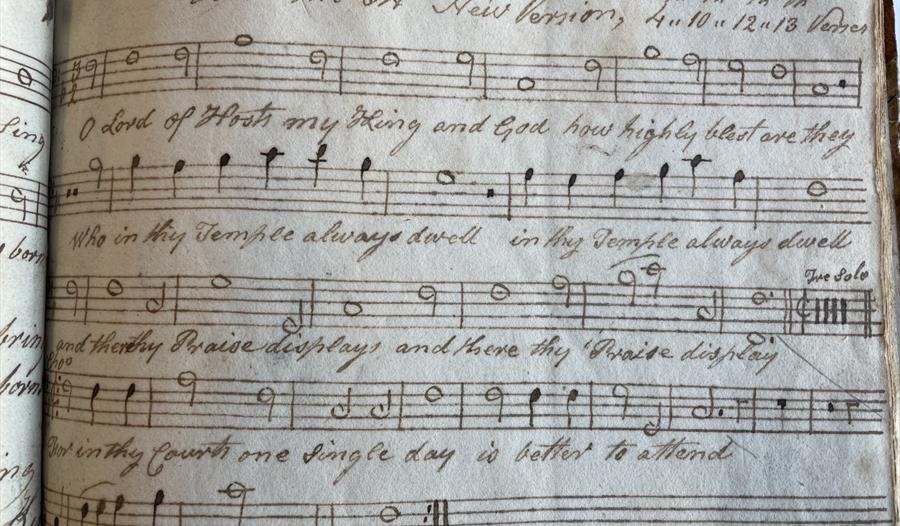 New Version, 4 " 10 " 12 " 13 Verses
O Lord of Hosts my King and God how highly blest are they
Who in thy Temple always dwell in thy Temple always dwell
Tre Solo
and there thy Praise displays and there thy Praise display
For in thy Courts one single day is better to attend